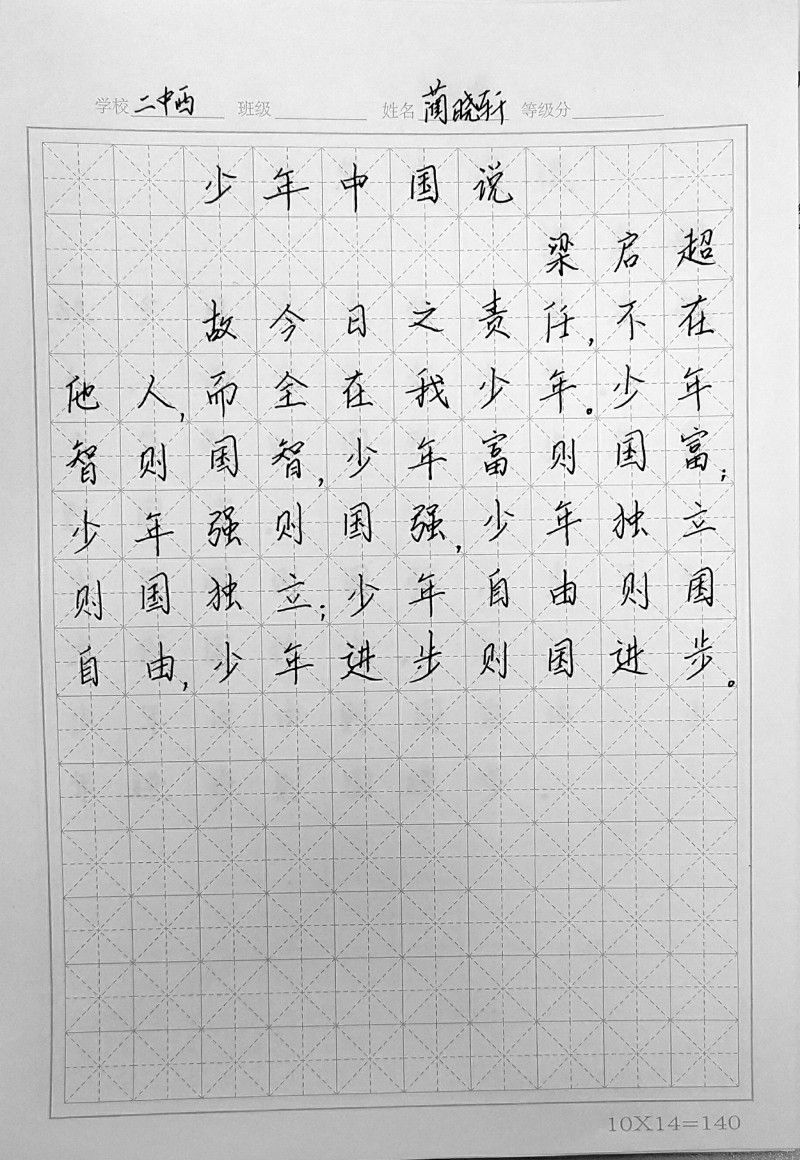 学校 二中西 班级 姓名 蔺晓轩 等级分
少年中国说
梁启超
故今日之责任,不在
他人,而全在我少年。少年
智则国智,少年富则国富;
少年强则国强,少年独立
则国独立;少年自由则国
自由,少年进步则国进步。
10X14=140